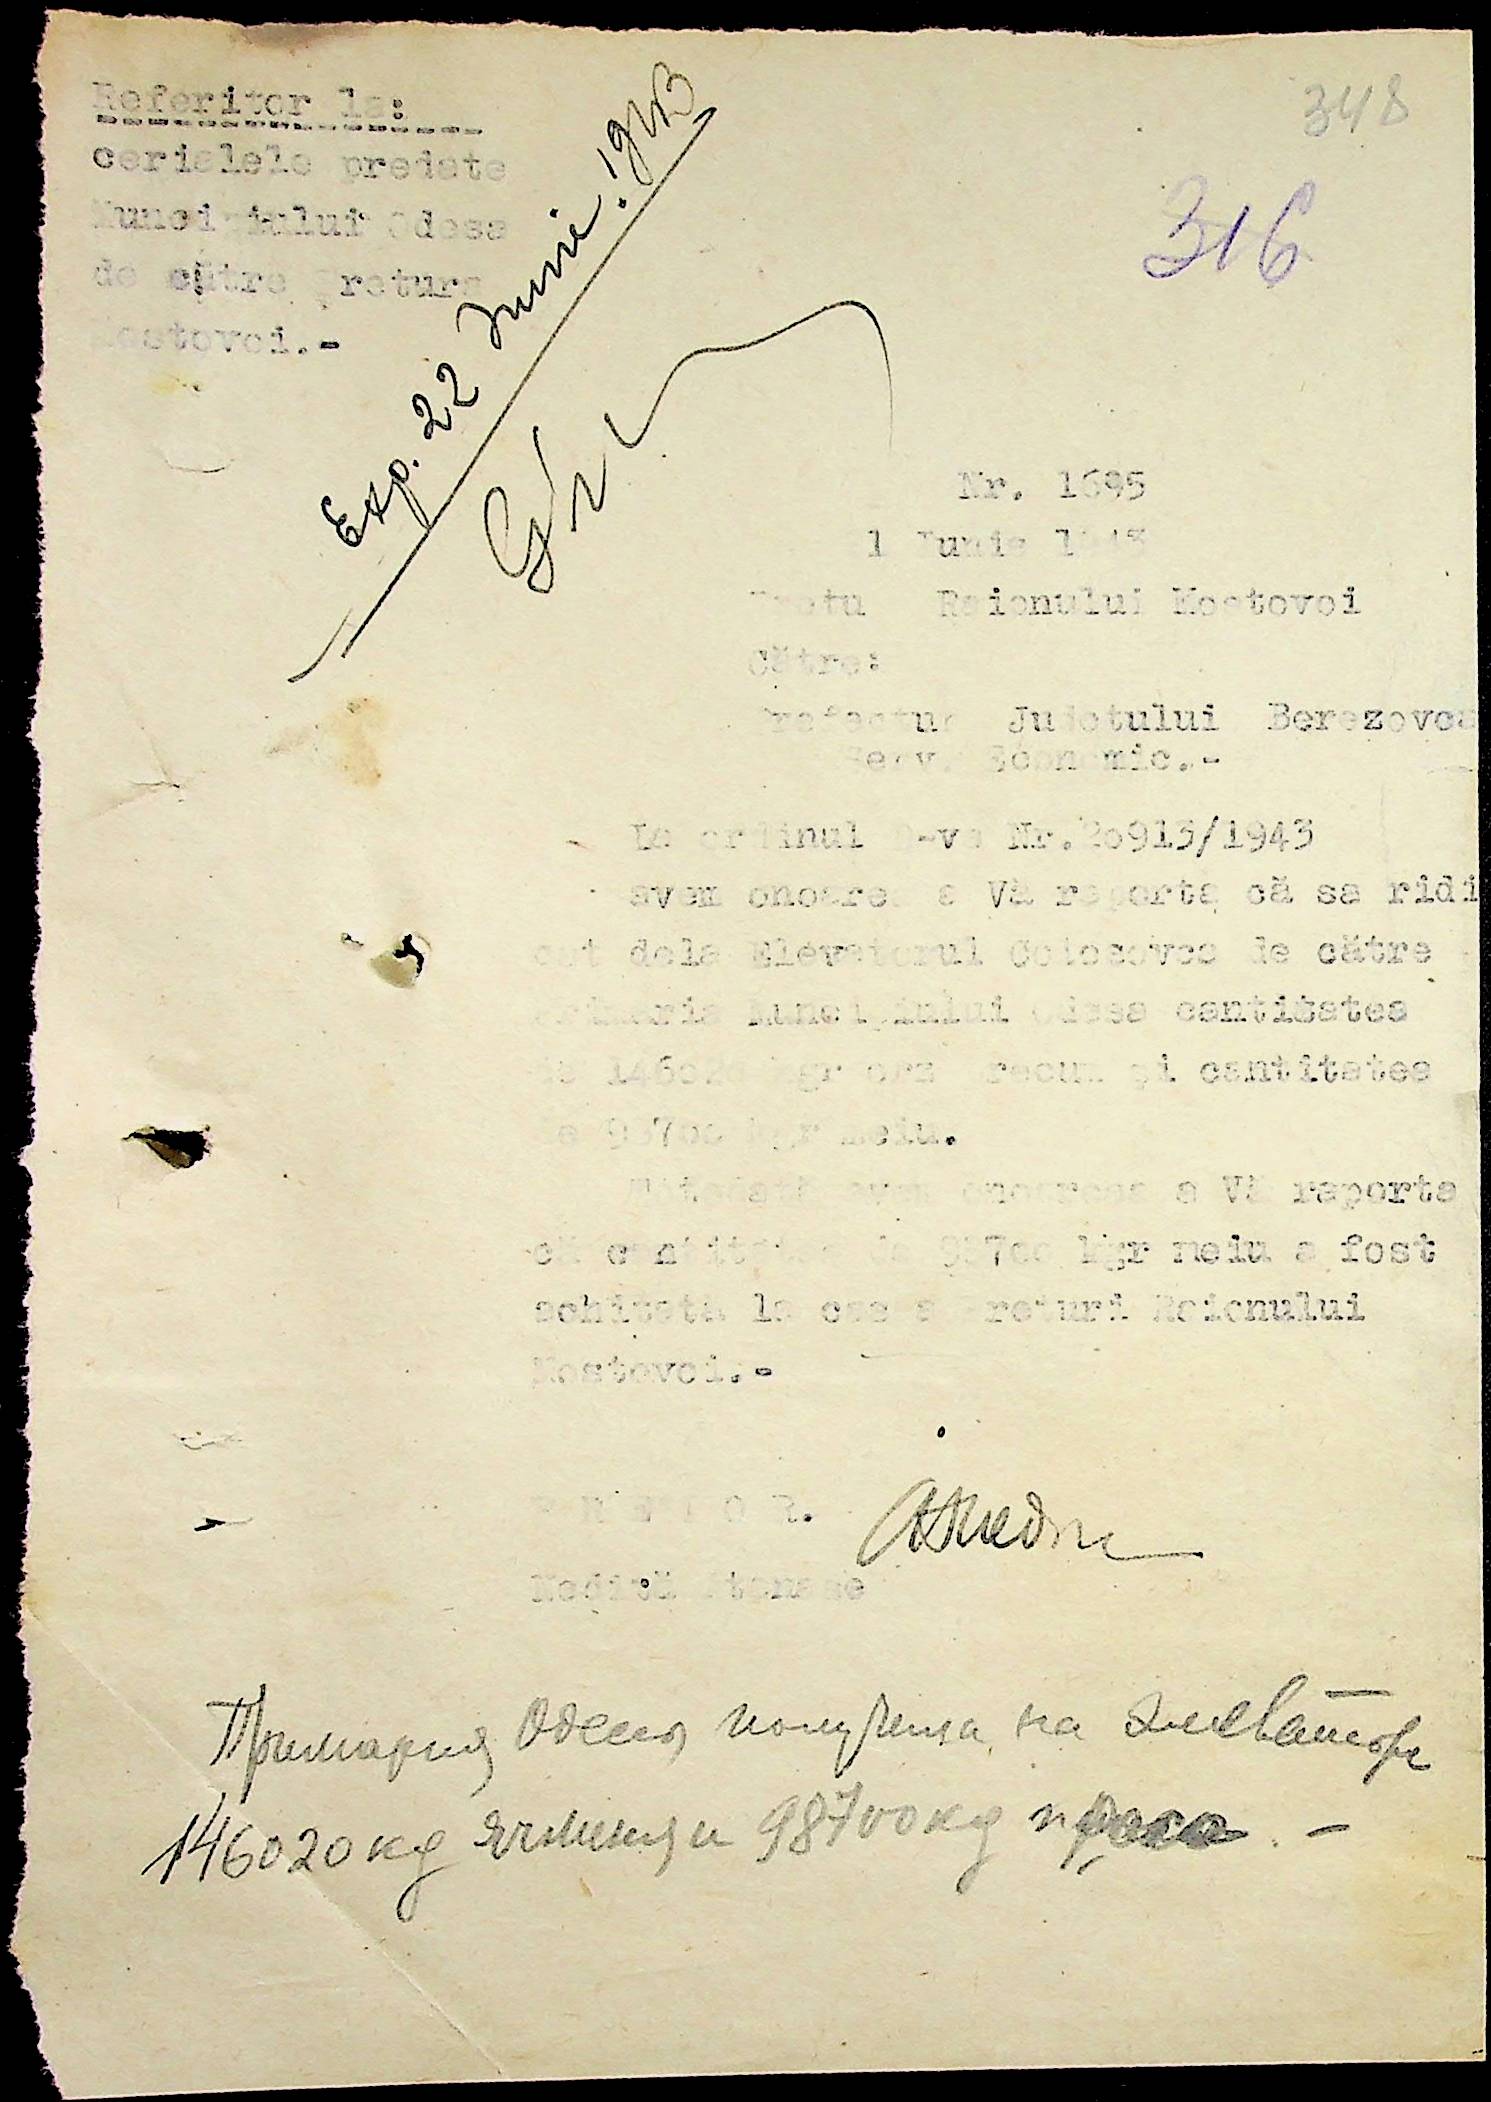 348
316
Referitor la:
cerialele predate
Muncipiului Odesa
de către pretura
Mostovoi.-
Exp. 22 Iunie. 1943
Nr. 1695
1 Iunie 1943
Raionului Mostovoi
Către:
Prefectura Judetului Berezovca
Serv. Economic.-
La ordinul D-va Nr. 20913/1943
avem onoarea a Vă raporta că sa ridi
cat dela Elevatorul Colosovca de către
Primaria Muncipiului Odesa cantitatea
de 146020 kgr orz precum și cantitatea
de 98700 kgr meiu.
avem onoarea a Vă raporta
că cantitatea de 98700 kgr meiu a fost
achitată la casa Preturi Raionului
Mostovoi.-
PRETOR.
Atanase
Примария Одесса получила на элеваторе
146020 кg ячменя и 98700 кg просо. -